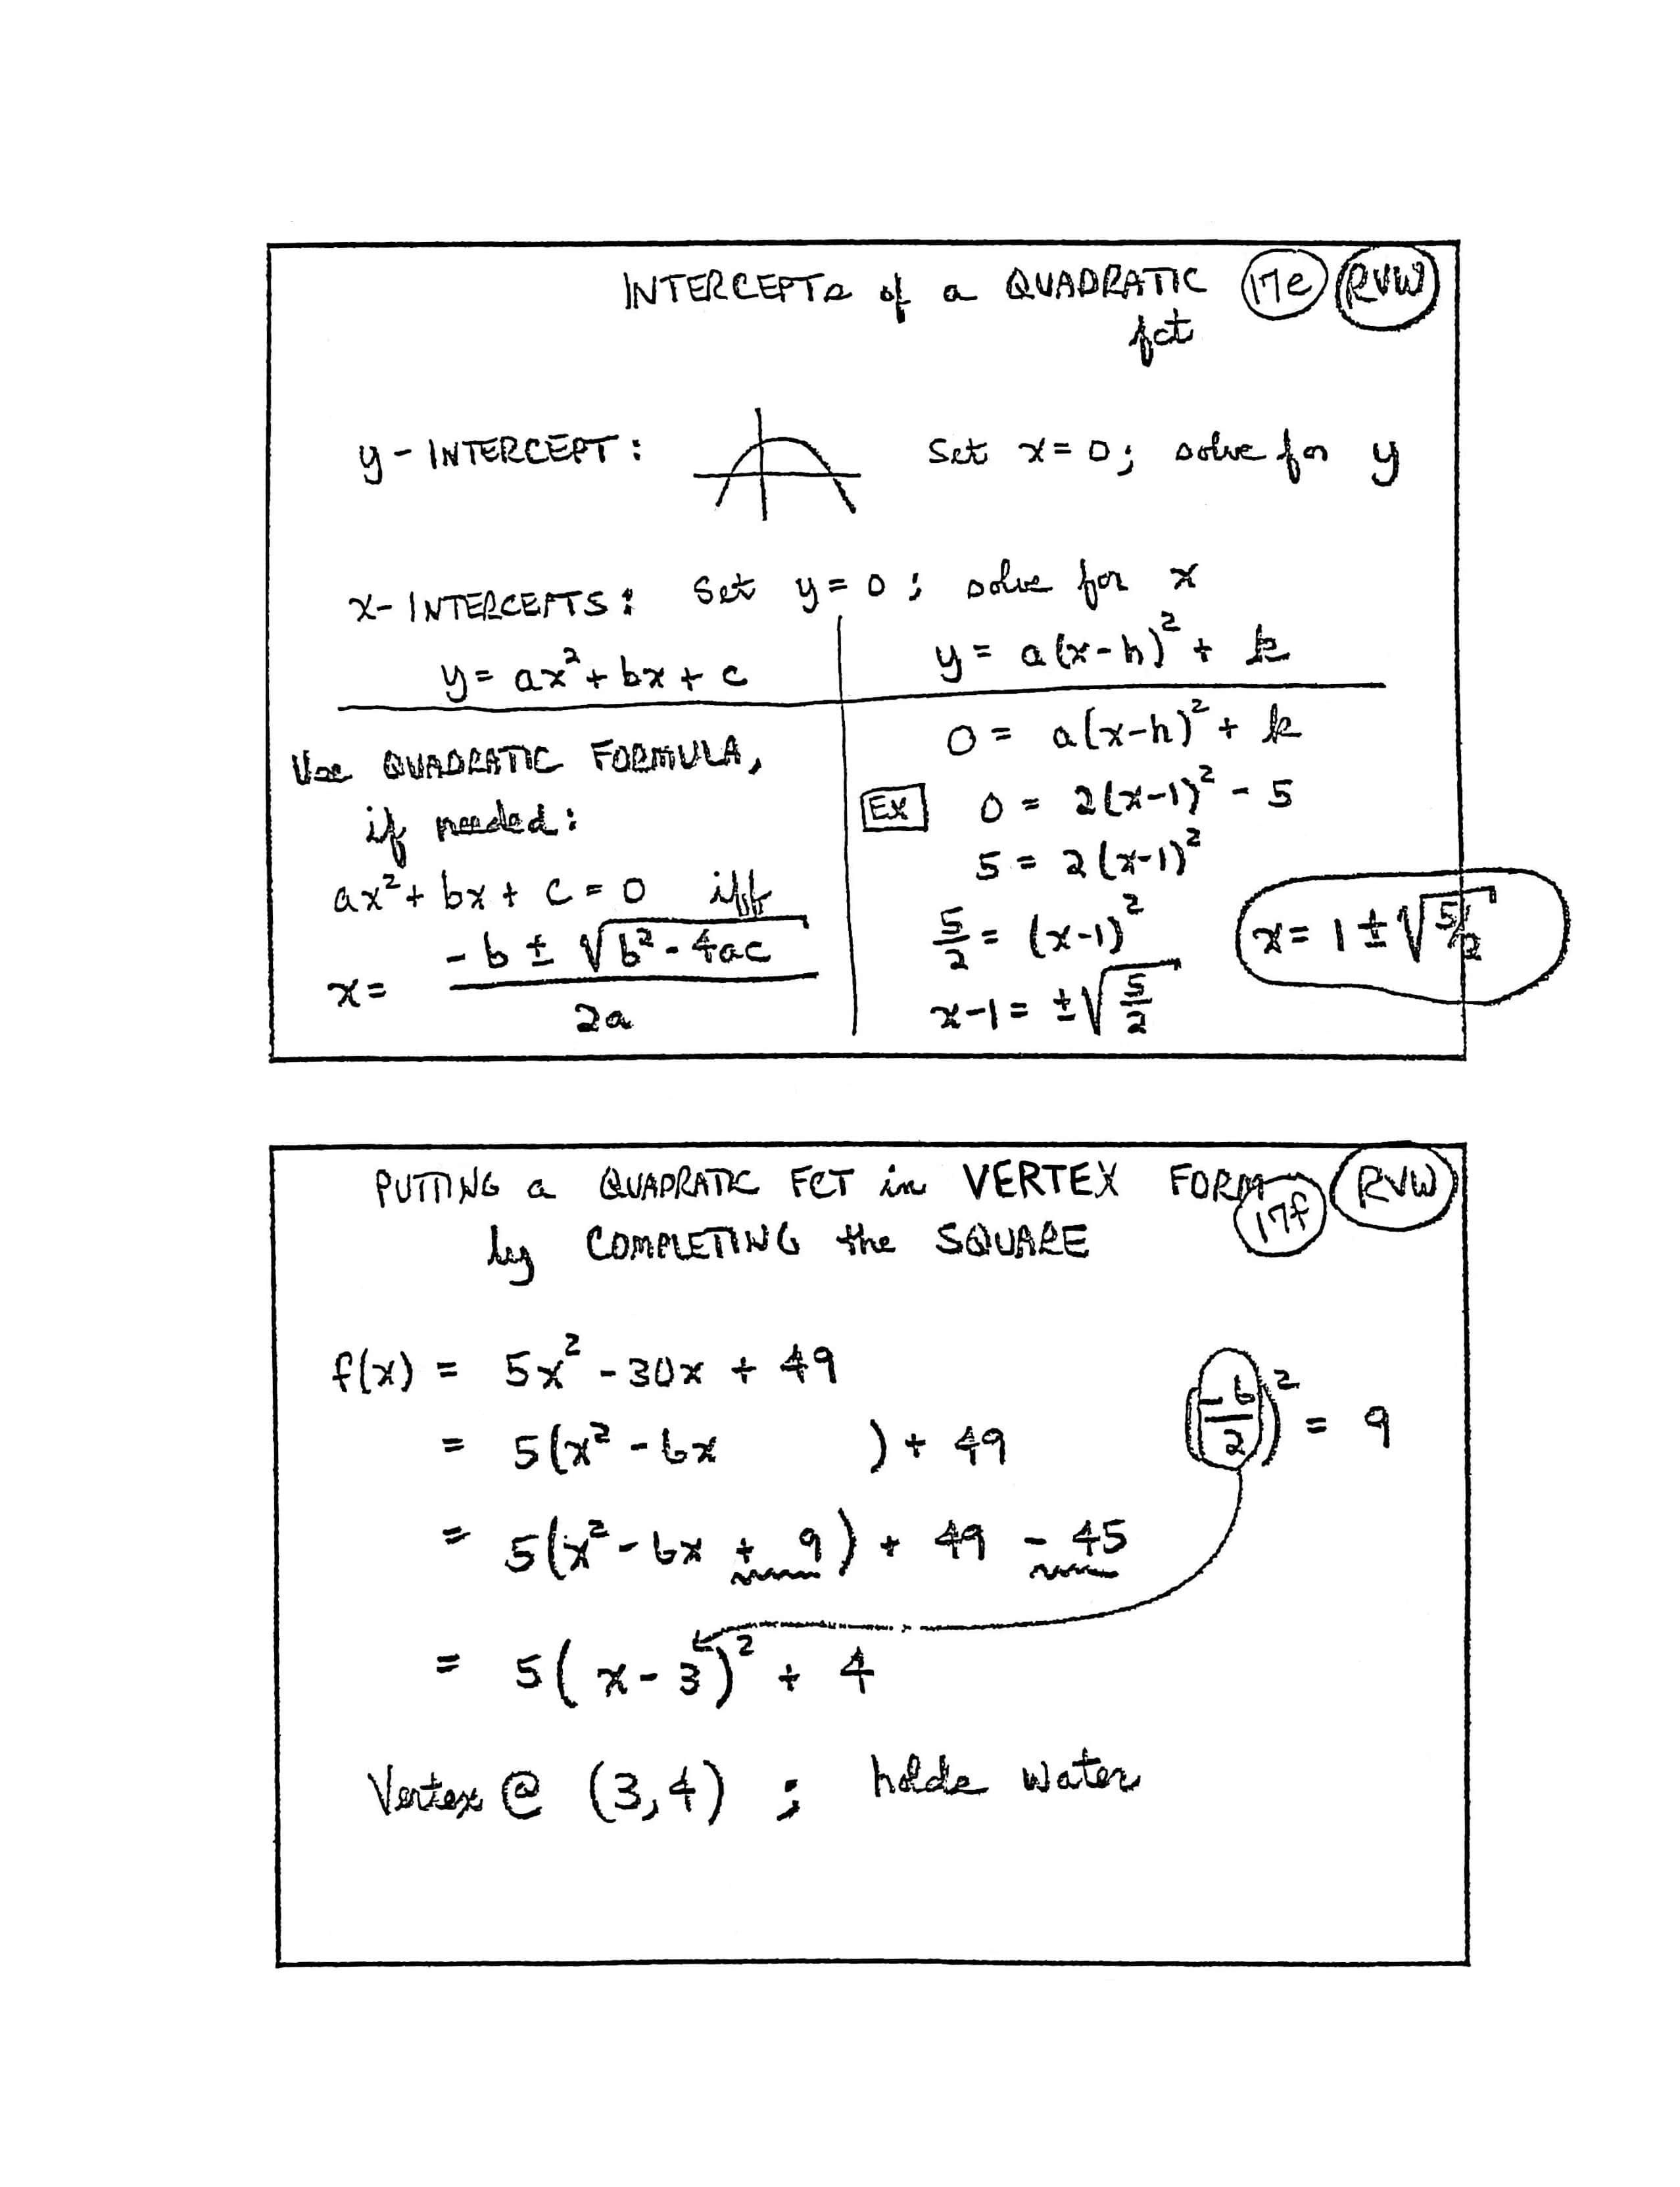 INTERCEPTs of a QUADRATIC 17e RVW
fct
y-INTERCEPT: Set x=0; solve for y
x-INTERCEPTS: Set y=0; solve for x
y = ax² + bx + c
y = a(x-h)² + k
Use QUADRATIC FORMULA,
if needed:
ax² + bx + c = 0 iff
x = (-b ± √(b² - 4ac)) / 2a
0 = a(x-h)² + k
EX 0 = 2(x-1)² - 5
5 = 2(x-1)²
5/2 = (x-1)²
x-1 = ±√(5/2)
x = 1 ± √(5/2)
PUTTING a QUADRATIC FCT in VERTEX FORM RVW
by COMPLETING the SQUARE 17f
f(x) = 5x² - 30x + 49
= 5(x² - 6x ) + 49 (-6/2)² = 9
= 5(x² - 6x + 9) + 49 - 45
= 5(x - 3)² + 4
Vertex @ (3,4) ; holds water